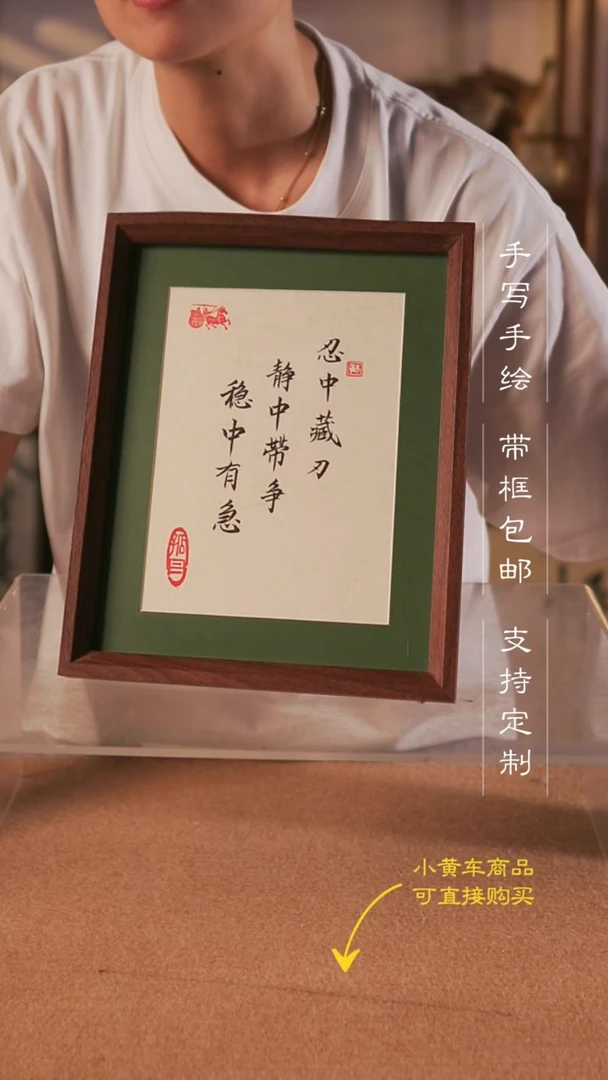 忍中藏刀
静中带争
稳中有急
手写手绘
带框包邮
支持定制
小黄车商品
可直接购买